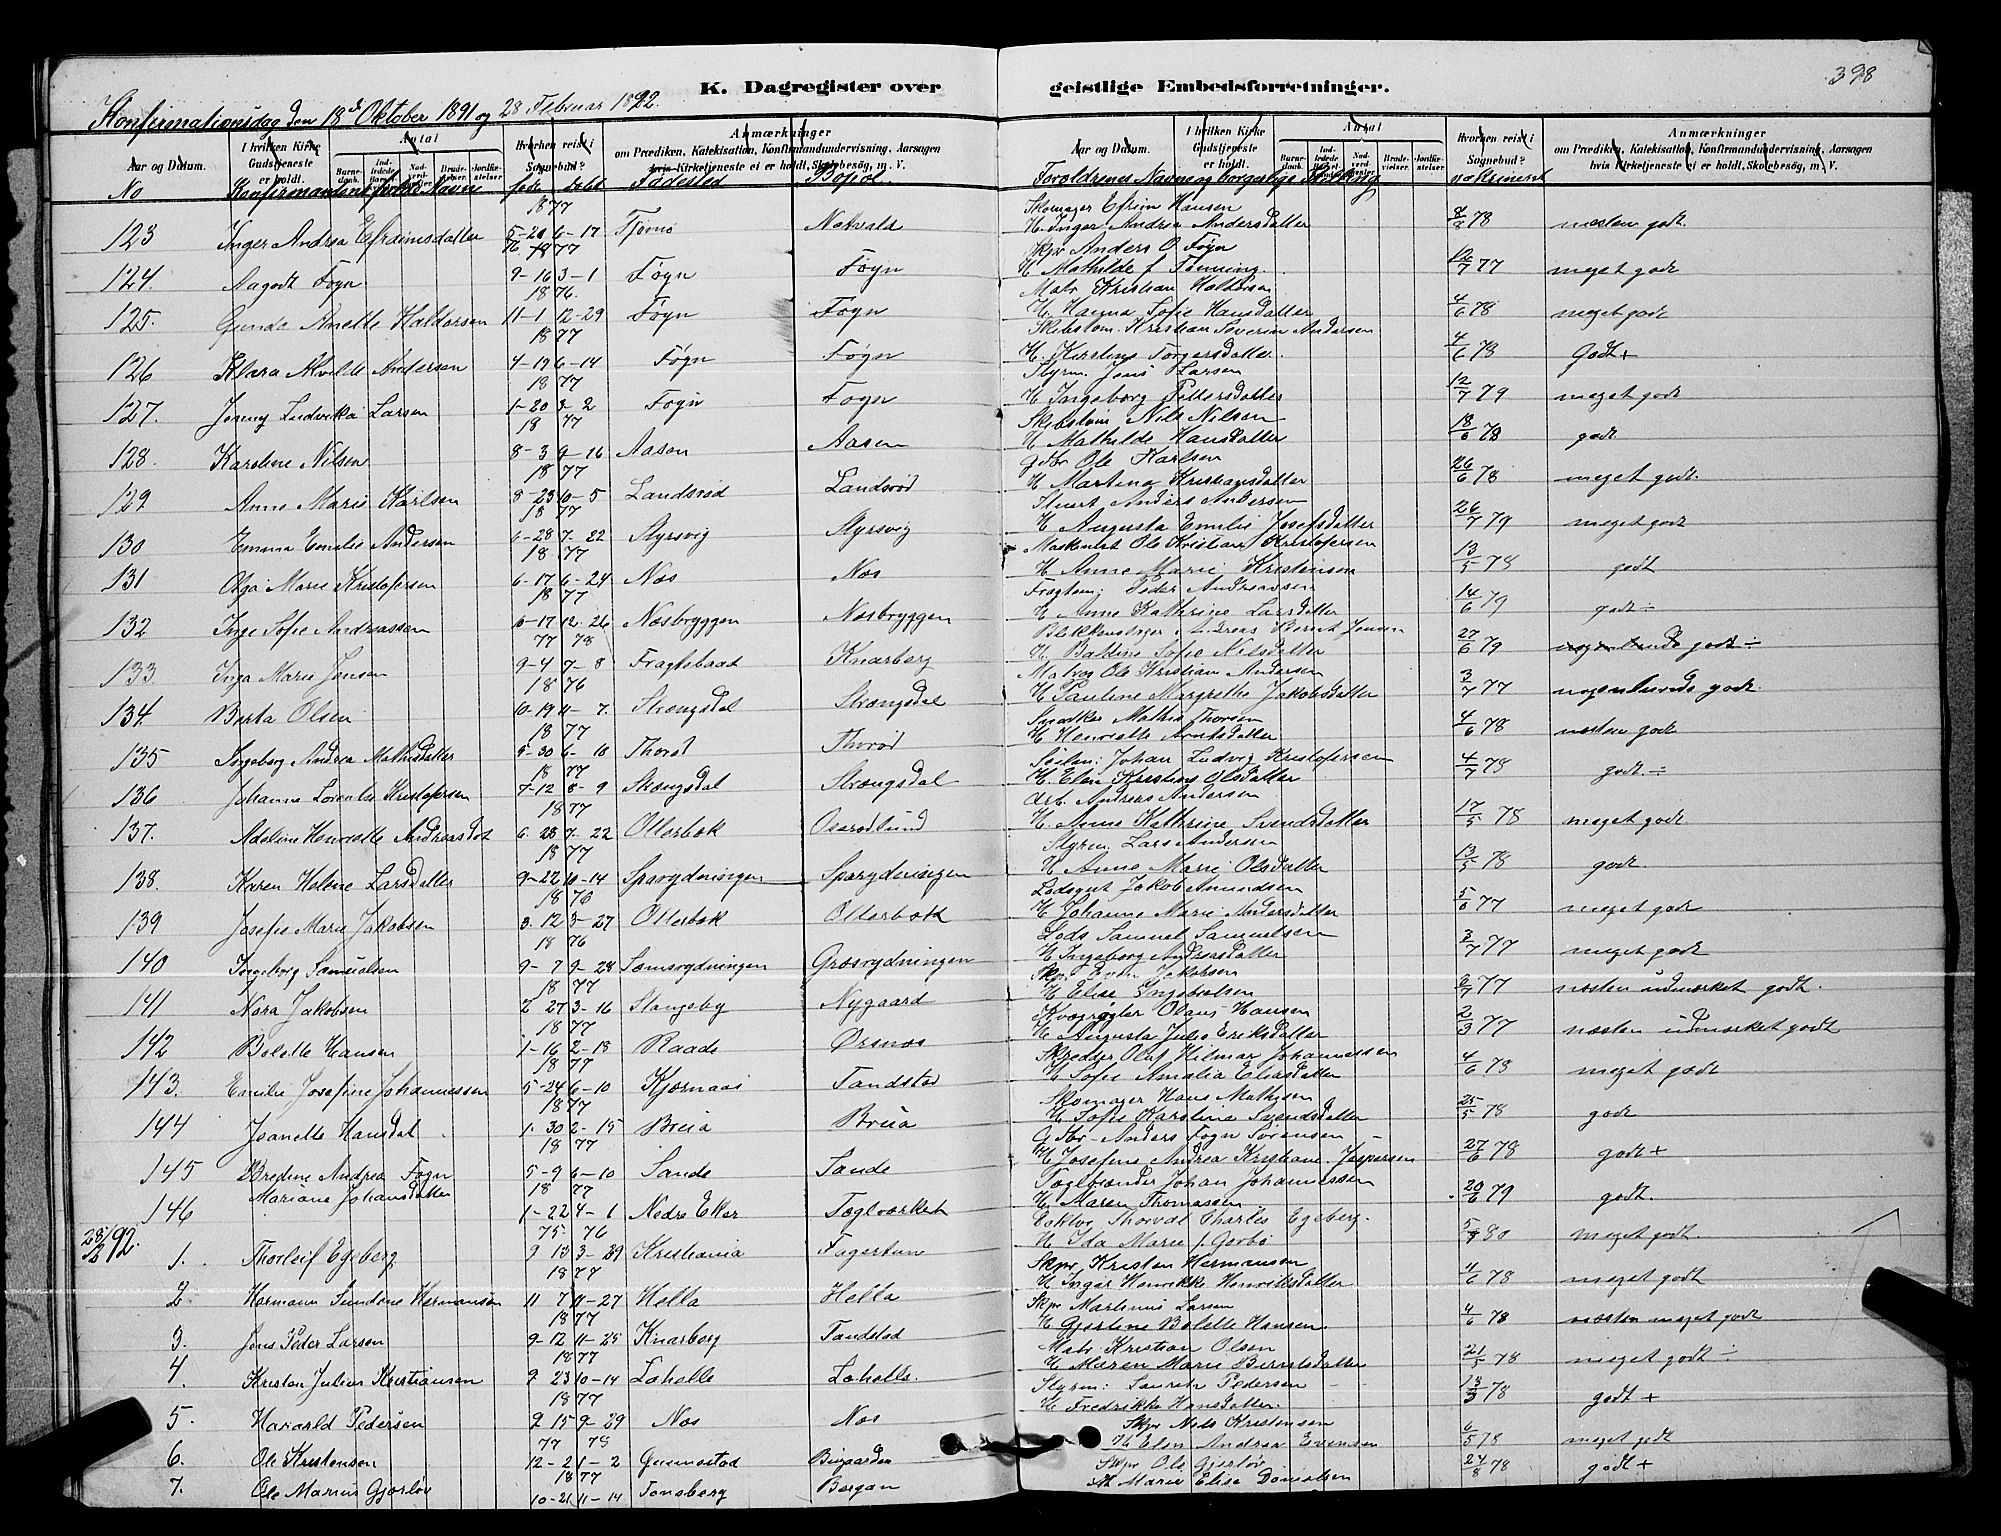 398
K. Dagregister over geistlige Embedsforretninger.
Konfirmationsdag den 18d Oktober 1891 og 28 Februar 1892.
Aar og Datum. I hvilken Kirke Gudstjeneste er holdt. Antal Hvorhen reist i Sognebud? Anmærkninger om Prædiken, Katekisation, Konfirmandundervisning, Aarsagen hvis Kirketjeneste ei er holdt, Skolebesøg, m. V.
Aar og Datum. I hvilken Kirke Gudstjeneste er holdt. Antal Hvorhen reist i Sognebud? Anmærkninger om Prædiken, Katekisation, Konfirmandundervisning, Aarsagen hvis Kirketjeneste ei er holdt, Skolebesøg, m. V.
No Konfirmandens Navne føde døbt Fødested Bopæl Foræeldrenes Navne og borgerlige Stilling vakcineret
1877 Skomager Efrim Hansen
123 Inger Andrea Efraimsdatter 5-20 6-17 Tjømø Nakvald H. Inger Andrea Andersdatter 78 næsten godt
1877 Skpr Anders O Føyn
124. Aagodt Føyn 9-16 3-1 Føyn Føyn H Mathilde f Tønning 77 meget godt
1876. Matr Kristian Haldorsen
125. Gunda Anette Haldorsen 11-1 12-29 Føyn Føyn H. Hagna Sofie Hansdatter 4/6 78 meget godt
1877 Skibstøm. Kristian Severin Andersen
126 Klara Alvilde Andersen 4-19 6-14 Føyn Føyn H. Kirstine Torgersdatter. 4/6 78 Godt+
1877 Styrm. Jens Larsen
127. Jenny Ludvika Larsen 1-20 3-2 Føyn Føyn H Ingeborg Pettersdatter 12/7 79 meget godt
1877 Skibstøm Nils Nilsen
128. Karoline Nilsen 8-3 9-16 Aasen Aasen H Mathilde Hansdatter 18/6 78 godt
1877 Gdbr Ole Karlsen
129 Anne Marie Karlsen 8-23 10-5 Landsrød Landsrød H Martena Kristiansdatter 26/6 78 meget godt.
1877 Stuert Anders Andersen
130 Emma Emelie Andersen 6-28 7-22 Styrsvig Styrsvig H Augusta Emilie Josefsdatter 26/7 79 meget godt
1877 Maskinist Ole Kristian Kristofersen
131 Olga Marie Kristofersen 6-17 6-24 Næs Næs H Anne Marie Kristensen 13/5 78 godt
1877 Fragtem: Peder Andreassen
132 Inga Sofie Andreassen 10-17 12-26 Næsbryggen Næsbryggen H Anne Kathrine Larsdatter 14/6 79 godt ÷
77 78 Blikkenslager Andreas Bernt Jensen
133. Inga Marie Jensen 9-4 7-8 Fragtsbaat Knarberg H Baldine Sofie Nilsdatter 27/6 79 nogenlunde godt ÷
1876 Matros Ole Kristian Andersen
134. Berta Olsen 10-19 11-7. Strængsdal Strængsdal H Pauline Margrethe Jakobsdatter 3/7 77 nogenlunde godt
1877 Snedker Mathis Thorsen
135 Ingeborg Andrea Mathisdatter 5-30 6-10 Thorød Thorød H Henriette Arntsdatter 4/6 78 næsten godt
1877 Seilm: Johan Ludvig Kristofersen
136 Johanne Lorentse Kristofersen 7-12 8-9 Skængsdal Strængsdal H. Elen Kristine Olsdatter 4/7 78 godt ÷
1877 Arb. Andreas Andersen
137. Adeline Henriette Andreasdat 6-28 7-22 Otterbæk Oserødlund H. Anne Kathrine Svendsdatter 17/5 78 meget godt
1877 Styrm Lars Andersen
138. Karen Helene Larsdatter 9-22 10-14 Sparydningen Sparydningen H Anne Marie Olsdatter 13/5 78 godt
1876 Lodsgut Jakob Amundsen
139 Josefie Marie Jakobsen 3-12 3-27 Otterbæk Otterbæk H Johanne Marie Andersdatter 77 meget godt
1876 Lods Samuel Samuelsen
140 Ingeborg Samuelsen 9-7 9-28 Sæmsrydningen Græsrydningen H Ingeborg Andreasdatter 3/7 77 meget godt
1877 Skpr Even Jakobsen
141 Nora Jakobsen 2 27 3-16 Stangeby Nygaard H Elise Ingebretsen 2/7 77 næsten udmærket godt.
1877 Kvægrøgter Olaus Hansen
142 Bolette Hansen 1-16 2-18 Raade Ørsnes H Augusta Julie Eriksdatter 2/3 77 næsten udmærket godt
1877 Skredder Oluf Hilmar Johannessen
143. Emilie Josefine Johannessen 5-24 6-10 Kjærnaas Tandstad H Sofie Amalia Eliasdatter 4/6 78 meget godt
1877 Skomager Hans Mathisen
144 Jeanette Hansdat 1-30 2-15 Breia Breia H Sofie Karoline Svendsdatter 25/5 78 godt
1877 Gdbr Anders Fogn Sørensen
145 Bredine Andrea Fogn 5-9 6-10 Sande Tande H Josefine Andrea Kristiane Jespersen 27/6 78 godt +
1877 Teglbrænder Johan Johannessen
146 Mariane Johansdatter 1-22 4-1 Nedre Eker Teglværket H. Maren Thomassen 20/6 79 godt.
75-76 Doktor Thorvat Charles Egeberg.
28/2 92. 1. Thorleif Egeberg 9 13 3-29 Kristiania Fagertun H Ida Marie f. Gjerbø 80 meget godt.
1877 Skpr Kristen Hermansen
2. Hermann Sundene Hermansen 11 7 11-27 Hella Hella H Inger Henrikke Henriksdatter 4/6 78 meget godt
1877 Skpr Martinius Larsen
3. Jens Peder Larsen 9-12 11-25 Knarberg Tandstad H Gjertine Bolette Hansen. 4/6 78 næsten meget godt
1877 Matr Kristian Olsen
4. Kristen Julius Kristiansen 9 23 10-14 Lahelle Lahelle. H Maren Marie Berntsdatter 21/5 78 meget godt ÷
1877 Styrm: Lauretz Pedersen
5. Harald Pedersen 9 15 9-29 Næs Næs H Fredrikke Hansdatter. 13/3 78 godt +
77 78 Skpr Nils Kristensen
6. Ole Kristensen 12-2 1-2 Gunnestad Biugaarden H Elen Andrea Evensen 6/5 78 meget godt
1877 Skpr Ole Gjerløv
7. Ole Marius Gjerløv 10-21 11-14 Tønsberg Bergan H Marie Elise Danielsen 24/8 78 godt +